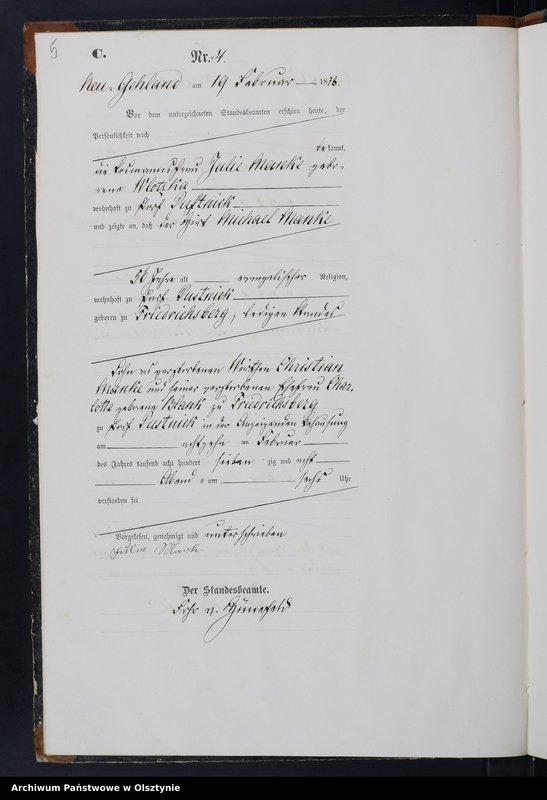 5
C.
Nr. 4.
Neu-Gehland am 19 Februar 1878.
Vor dem unterzeichneten Standesbeamten erschien heute, der
Persönlichkeit nach
be kannt,
die Losmannsfrau Julie Manke gebo-
rene Wlotzka
wohnhaft zu Dorf Pustnick
und zeigte an, daß der Wirt Michael Manke
50 Jahre alt evangelischer Religion,
wohnhaft zu Dorf Pustnick
geboren zu Friedrichsberg, ledigen Standes
Sohn des verstorbenen Wirthen Christian
Manke und seiner verstorbenen Ehefrau Char-
lotte geborene Blank zu Friedrichsberg
zu Dorf Pustnick in der Anzeigenden Behausung
am achtzehn ten Februar
des Jahres tausend acht hundert sieben zig und acht
Abend s um sechs Uhr
verstorben sei
Vorgelesen, genehmigt und unterschrieben
Julie Manke
Der Standesbeamte.
Frhr v. Hünefeld
Archiwum Państwowe w Olsztynie